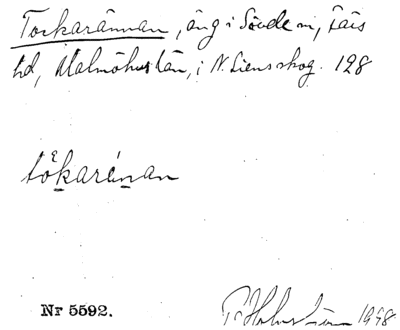 Torkarännan, äng i Sövde sn, Färs
hd, Malmöhus län, i N. Liens skog. 128
tåkarénan
Nr 5592.
1998